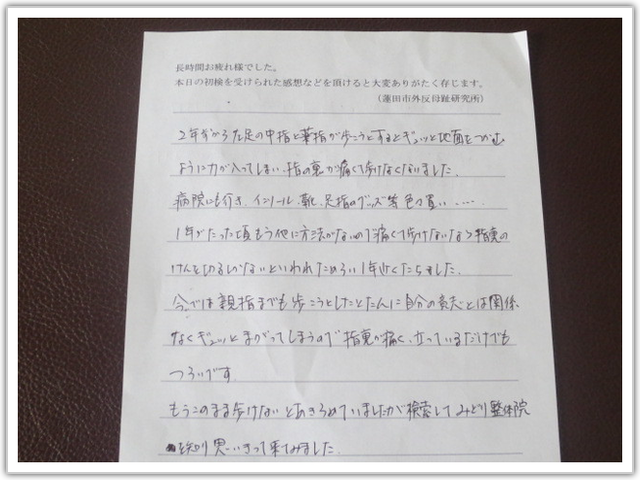 長時間お疲れ様でした。
本日の初検を受けられた感想などを頂けると大変ありがたく存じます。
(蓮田市外反母趾研究所)
2年半から左足の中指と薬指が歩こうとするとギュッと地面をつかむ
ように力が入ってしまい指の裏が痛くて歩けなくなりました。
病院にも行き、インソール、靴、足指のグッズ等色々買い、……
1年がたった頃もう他に方法がないので痛くて歩けないなら指裏の
けんを切るしかないといわれためらい1年近くたちました。
今では親指までも歩こうとしたとたんに自分の意志とは関係
なくギュッとまがってしまうので指裏が痛く、立っているだけでも
つらいです。
もうこのまま歩けないとあきらめていましたが検索してみどり整体院
を知り思いきって来てみました。